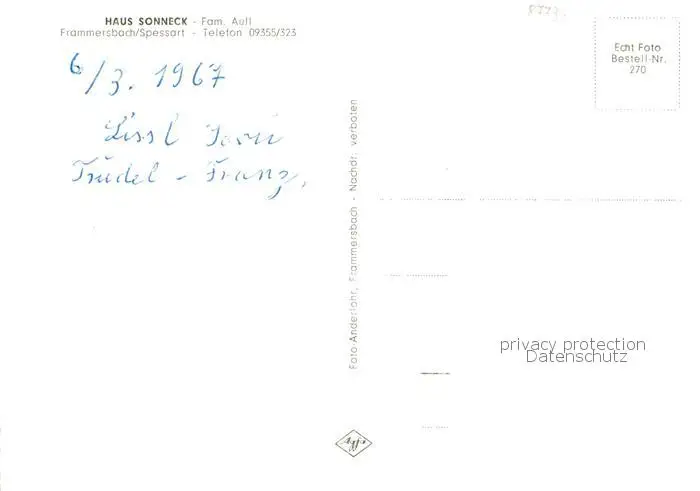 HAUS SONNECK - Fam. Aull
Frammersbach/Spessart - Telefon 09355/323
6/3. 1967
Lissl
Trudel - Franz,
Foto-Anderlohr, Frammersbach - Nachdr. verboten
Echt Foto
Bestell-Nr.
270
privacy protection
Datenschutz
Agfa